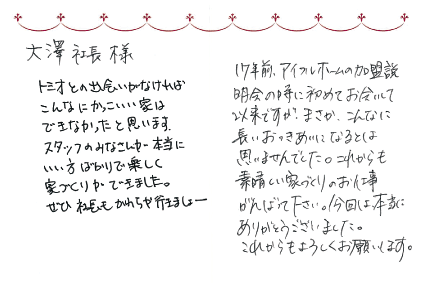 大澤社長様
トミオとの出会いがなければ
こんなにかっこいい家は
できなかったと思います。
スタッフのみなさんが本当に
いい方ばかりで楽しく
家づくりができました。
ぜひ 社長も かわちや行きましょー
17年前、アイフルホームの加盟説
明会の時に初めてお会いして
以来ですが、まさか、こんなに
長いおつきあいになるとは
思いませんでした。これからも
素晴しい家づくりのお仕事
がんばって下さい。今回は本当に
ありがとうございました。
これからもよろしくお願いします。